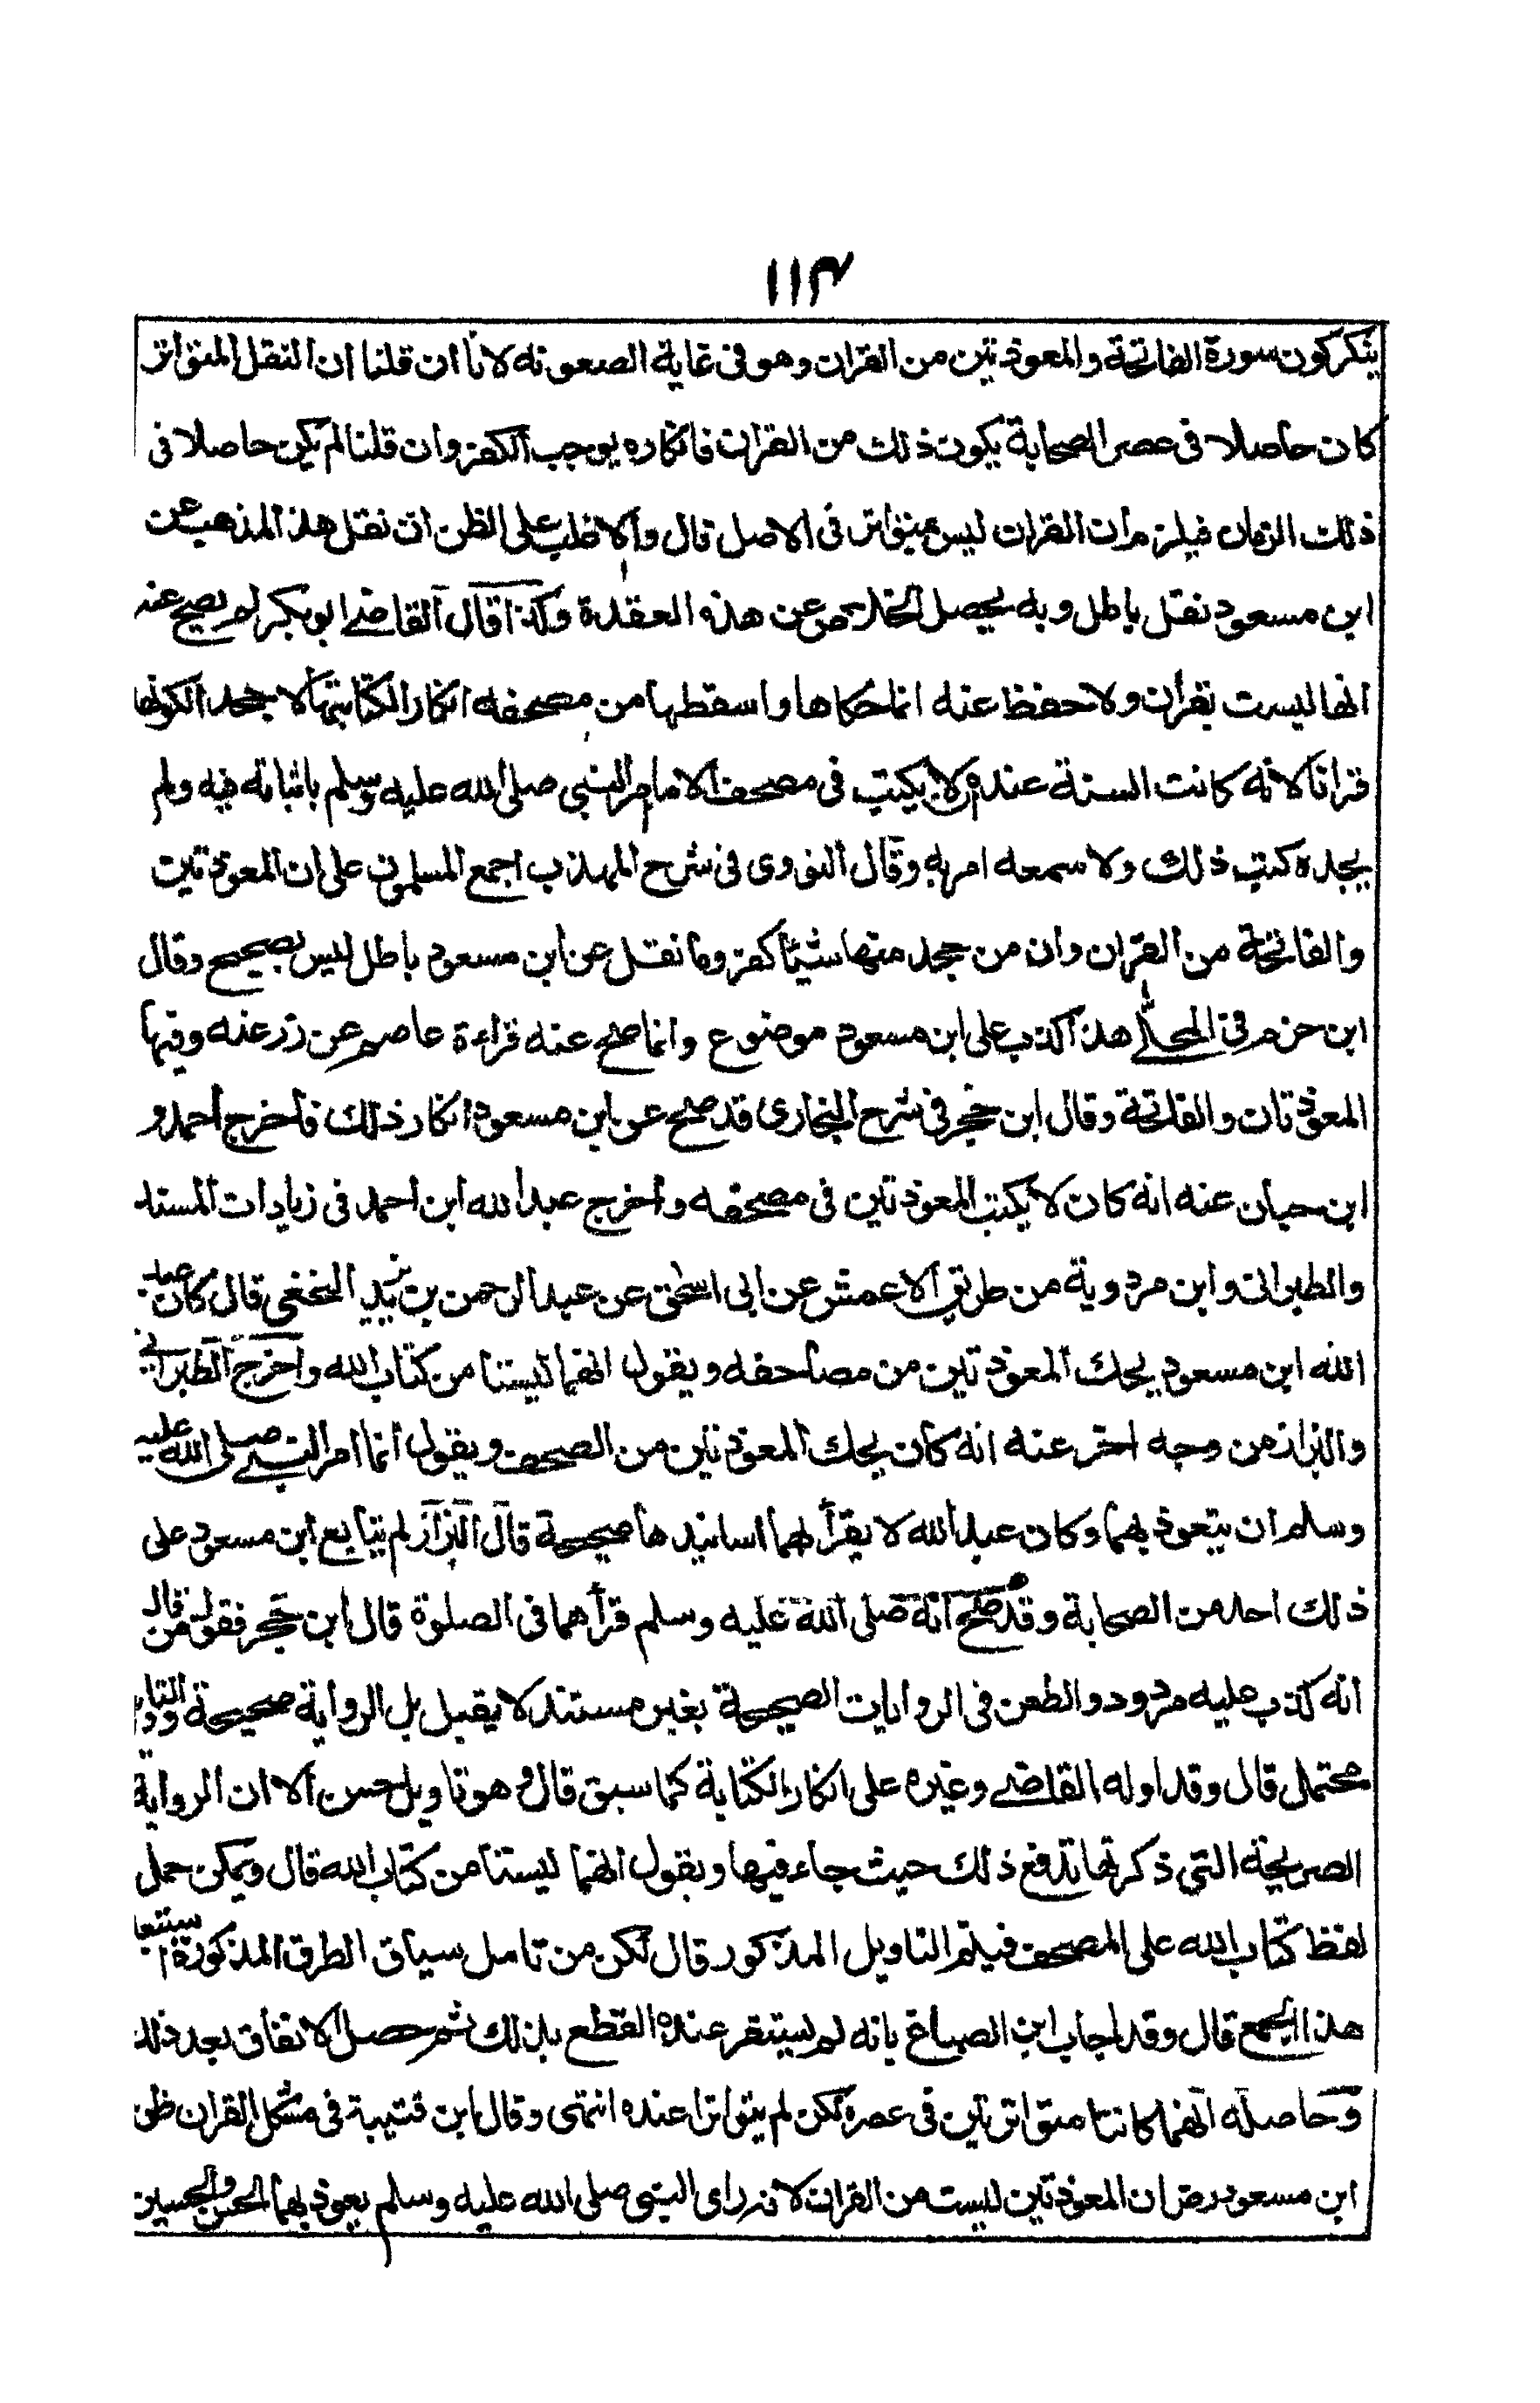 ١١٣
ينكر كون سورة الفاتحة والمعوذتين من القران وهو فى غاية الصعوبة لانا ان قلنا ان النقل المتواتر
كان حاصلا فى عصر الصحابة يكون ذلك من القران فانكاره يوجب الكفر وان قلنا لم يكن حاصلا فى
ذلك الزمان فيلزم أن القران ليس بمتواتر فى الاصل قال والاغلب على الظن ان نقل هذا المذهب عن
ابن مسعود نقل باطل وبه يحصل الخلاص عن هذه العقدة وكذا قال القاضے ابو بكر لم يصح عنه
انها ليست بقرأن ولا حفظ عنه انما حكاها واسقطها من مصحفه انكارا لكتابتها لا جحدا لكونها
قرانا لانه كانت السنة عنده ان لا يكتب فى مصحف الا ما امر النبي صلى الله عليه وسلم باثباته فيه ولم
يجده كتب ذلك ولا سمعه امر به وقال النووى فى شرح المهذب اجمع المسلمون على ان المعوذتين
والفاتحة من القران وان من جحد منها شيئا كفر وما نقل عن ابن مسعود باطل ليس بصحيح وقال
ابن حزم فى المحلے هذا كذب على ابن مسعود موضوع وانما صح عنه قراءة عاصم عن زر عنه وفيها
المعوذتان والفاتحة وقال ابن حجر فى شرح البخارى قد صح عن ابن مسعود انكار ذلك فأخرج أحمد و
ابن حبان عنه انه كان لا يكتب المعوذتين فى مصحفه وأخرج عبد الله ابن احمد فى زيادات المسند
والطبرانى وابن مردوية من طريق الاعمش عن ابى اسحق عن عبد الرحمن بن يزيد النخعى قال كان عبد
الله ابن مسعود يحك المعوذتين من مصاحفه ويقول انهما ليستا من كتاب الله واخرج الطبرانى
والبزاز من وجه اخر عنه انه كان يحك المعوذتين من الصحف ويقول انما امر النبے صلى الله عليه
وسلم ان يتعوذ بهما وكان عبد الله لا يقرأ بهما اسانيدها صحيحة قال البزاز لم يتابع ابن مسعود على
ذلك احد من الصحابة وقد صح انه صلى الله عليه وسلم قرأهما فى الصلوة قال ابن حجر فقول من قال
انه كذب عليه مردود والطعن فى الروايات الصحيحة بغير مستند لا يقبل بل الرواية صحيحة والتاويل
محتمل قال وقد اوله القاضے وغيره على انكار الكتابة كما سبق قال وهو تاويل حسن الا ان الرواية
الصريحة التي ذكرتها تدفع ذلك حيث جاء فيها ويقول انهما ليستا من كتاب الله قال ويمكن حمل
لفظ كتاب الله على المصحف فيتم التاويل المذكور قال لكن من تامل سياق الطرق المذكورة استبعد
هذا الجمع قال وقد اجاب ابن الصباغ بانه لم يستقر عنده القطع بذلك ثم حصل الاتفاق بعد ذلك
وحاصله انهما كانتا متواترتين فى عصره لكن لم يتواترا عنده انتهى وقال ابن قتيبة فى مشكل القران ظن
ابن مسعود رض ان المعوذتين ليست من القران لانه راى النبى صلى الله عليه وسلم يعوذ بهما الحسن والحسين